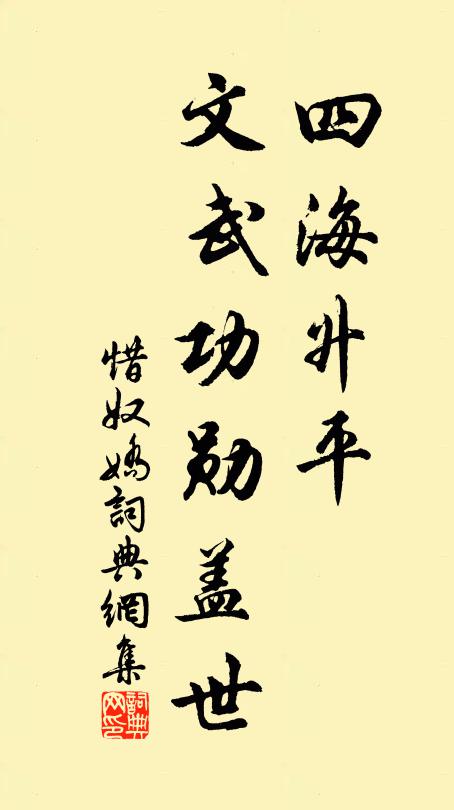 四海升平
文武功勋盖世
惜奴嬌詞典網集
詞典网印